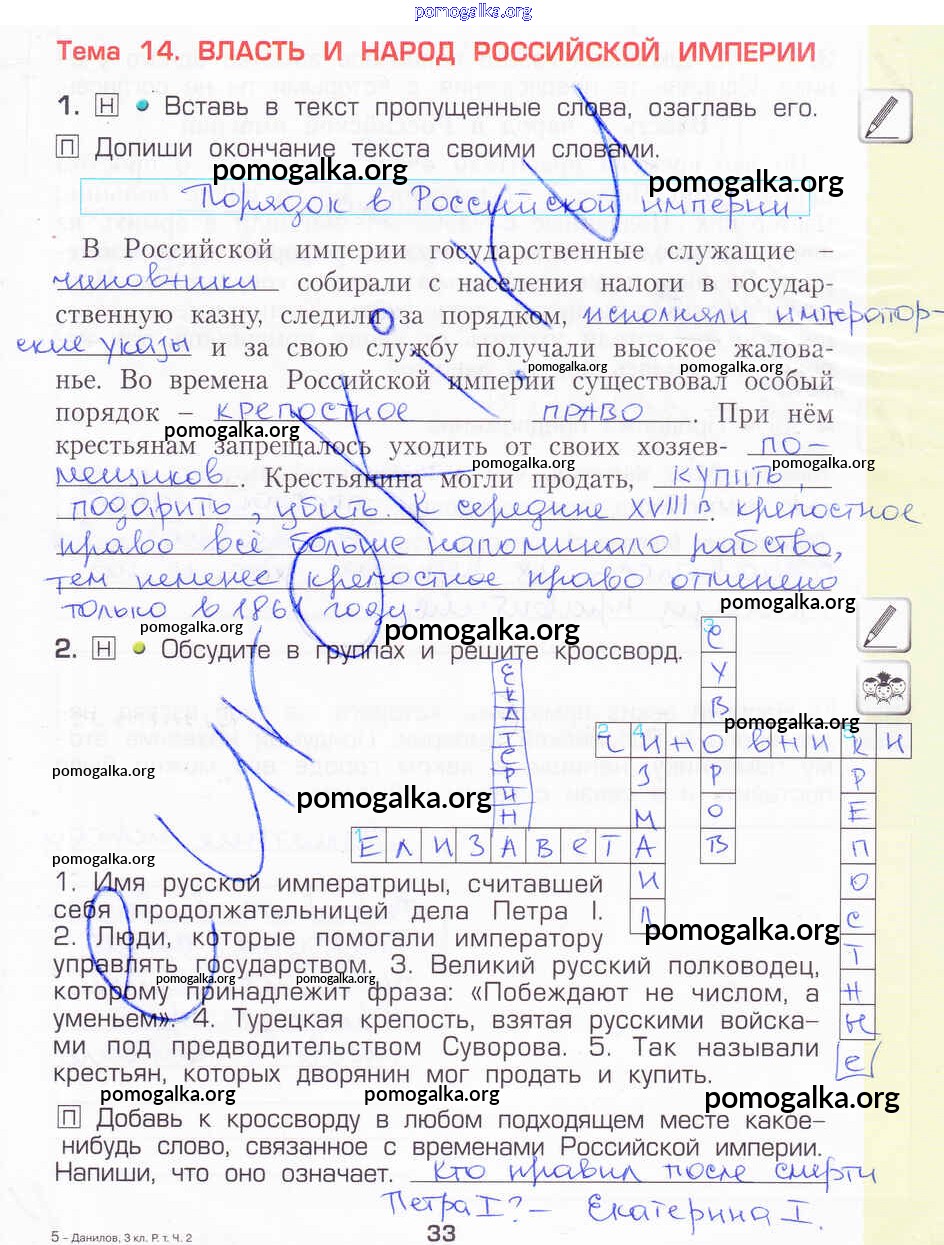 pomogalka.org
Тема 14. ВЛАСТЬ И НАРОД РОССИЙСКОЙ ИМПЕРИИ
1. Н • Вставь в текст пропущенные слова, озаглавь его.
П Допиши окончание текста своими словами.
pomogalka.org
pomogalka.org
Порядок в Российской империи.
В Российской империи государственные служащие
чиновники собирали с населения налоги в государ-
ственную казну, следили за порядком, исполняли император-
ские указы и за свою службу получали высокое жалова-
нье. Во времена Российской империи существовал особый
pomogalka.org pomogalka.org
порядок – крепостное право. При нём
pomogalka.org
крестьянам запрещалось уходить от своих хозяев- по-
pomogalka.org pomogalka.org
мещиков. Крестьянина могли продать, купить,
подарить, убить. К середине XVIII в. крепостное
право всё больше напоминало рабство,
тем неменее крепостное право отменено
только в 1861 году.
pomogalka.org
pomogalka.org
pomogalka.org
2. Н • Обсудите в группах и решите кроссворд.
3 СУВОРОВ
ЕКАТЕРИН
pomogalka.org
2 ЧИНОВНИКИ
4 ИЗМАИЛ
5 КРЕПОСТНЫЕ
pomogalka.org
pomogalka.org
1 ЕЛИЗАВЕТА
pomogalka.org
1. Имя русской императрицы, считавшей
себя продолжательницей дела Петра I.
pomogalka.org
2. Люди, которые помогали императору
управлять государством. 3. Великий русский полководец,
pomogalka.org pomogalka.org
которому принадлежит фраза: «Побеждают не числом, а
уменьем». 4. Турецкая крепость, взятая русскими войска-
ми под предводительством Суворова. 5. Так называли
крестьян, которых дворянин мог продать и купить.
pomogalka.org pomogalka.org pomogalka.org
П Добавь к кроссворду в любом подходящем месте какое-
нибудь слово, связанное с временами Российской империи.
Напиши, что оно означает. Кто правил после смерти
Петра I? – Екатерина I.
5 – Данилов, 3 кл. Р. т. Ч. 2
33